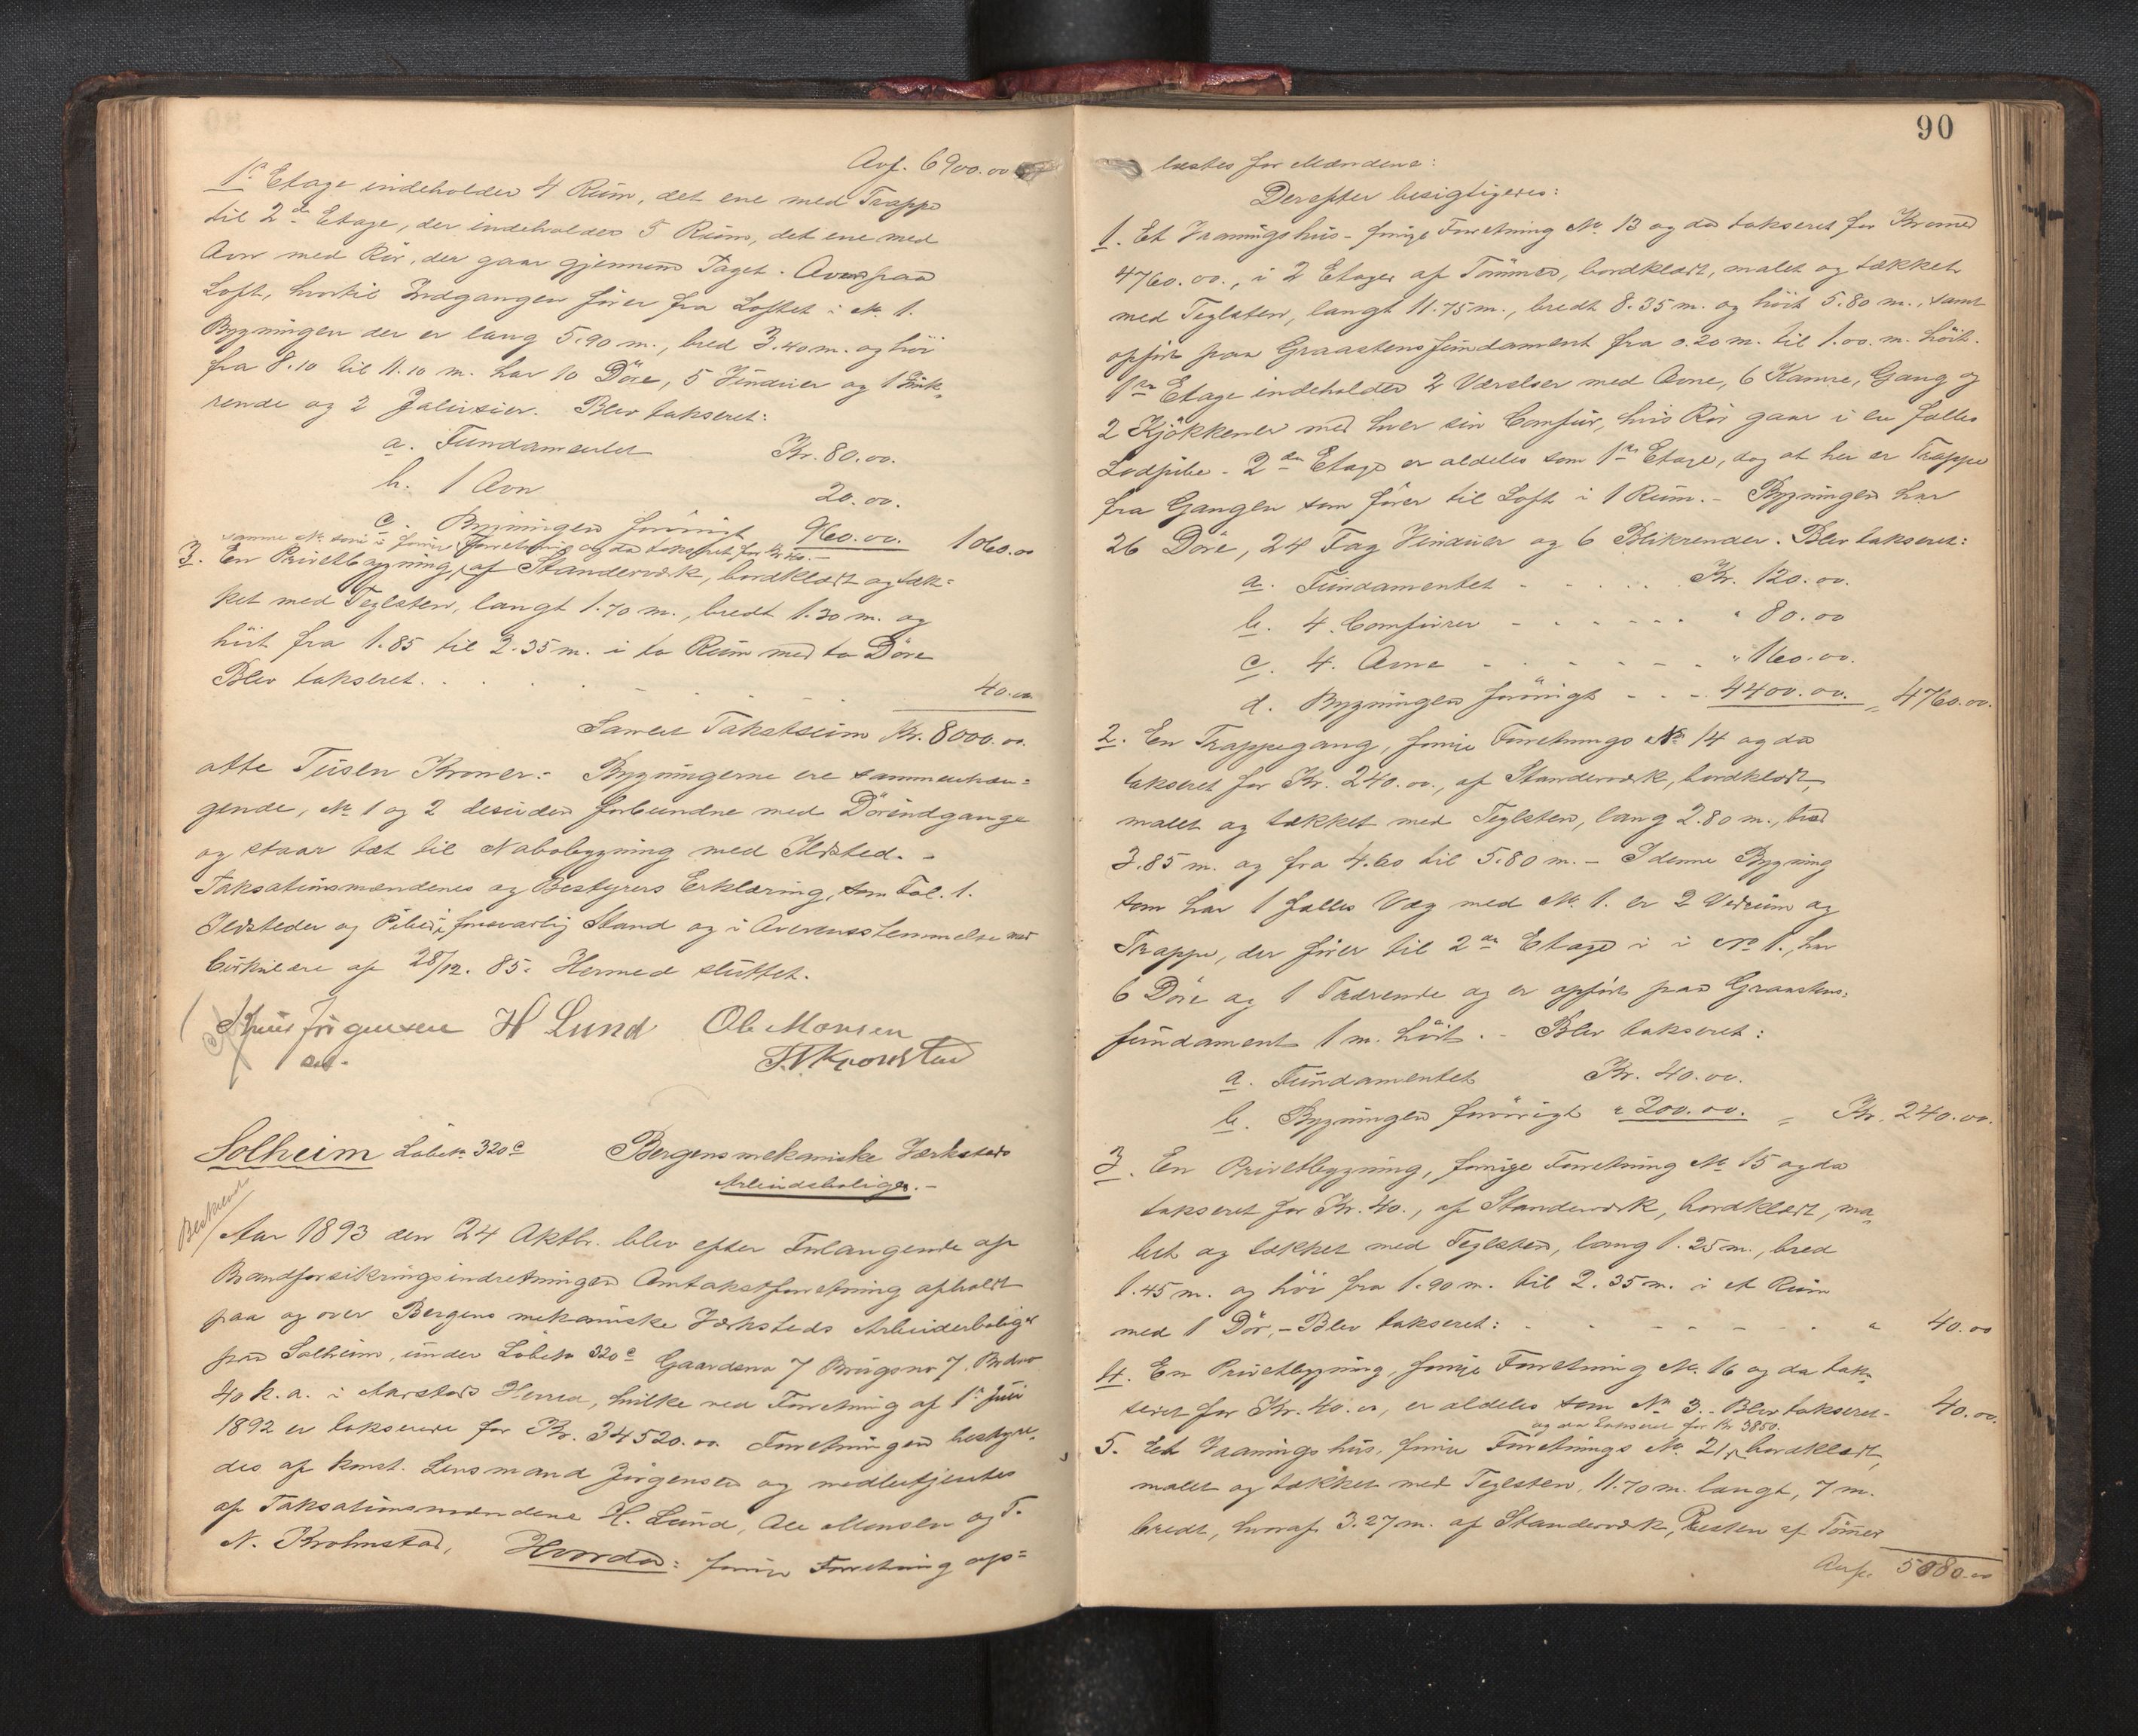 Avf. 6900.00
1ste Etage indeholder 4 Rum, det ene med Trappe
til 2den Etage, der indeholder 5 Rum, det ene med
Avn med Rör, der gaar gjennem Taget. Ovenpaa
Loft, hvortil Indgangen förer fra Loftet i No 1.
Bygningen der er lang 5.90 m., bred 3.40 m. og höi
fra 8.10 til 11.10 m. har 10 Döre, 5 Vinduer og 1 Tak-
rende og 2 Jalusier. Blev takseret:
a. Fundamentet Kr. 80.00.
b. 1 Avn 20.00.
c. Bygningen forövrigt 960.00. 1060.00
samme No som i forrige Forretning og da takseret for Kr 40.—
3. En Privetbygning, af Standerværk, bordklædt og tæk-
ket med Teglsten, langt 1.70 m., bredt 1.30 m. og
höit fra 1.85 til 2.35 m. i to Rum med to Döre
Blev takseret. 40.00
Samlet Takstsum Kr. 8000.00.
otte Tusen Kroner: Bygningerne ere sammenhæn-
gende, No 1 og 2 desuden forbundne med Dörindgange
og staar tæt til Nabobygning med Ildsted. -
Taksationsmændenes og Bestyrers Erklæring, som Fol. 1.
Ildsteder og Piber i forsvarlig Stand og i Overensstemmelse med
Cirkulære af 28/12. 85. Hermed sluttet.
Jörgensen H Lund Ole Monsen
T. N. Kronstad
Solheim Löbeno 320c Bergens mekaniske Værksteds
Arbeiderboliger.-
Beskrevet
Aar 1893 den 24 Oktbr. blev efter Forlangende af
Brandforsikringsindretningen Omtakstforretning afholdt
paa og over Bergens mekaniske Værksteds Arbeiderboliger
paa Solheim, under Löbeno 320c Gaardsno 7 Brugsno 7. Brdno
40 k. a. i Aarstads Herred, hvilke ved Forretning af 1ste Juni
1892 er takserede for Kr. 34520.00. Forretningen bestyre-
des af konst. Lensmand Jörgensen og medbetjentes
af Taksationsmændene H. Lund, Ole Monsen og T.
N. Krohnstad. Hvorda: forrige Forretning op-
90
læstes for Mændene:
Derefter besigtigedes:
1. Et Vaaningshus - forrige Forretning No 13 og da takseret for Kroner
4760.00., i 2 Etager af Tömmer, bordklædt, malet og tækket
med Teglsten, langt 11.75 m., bredt 8.35 m. og höit 5.80 m., samt
opfört paa Graastensfundament fra 0.20 m. til 1.00. m. höit.
1ste Etage indeholder 2 Værelser med Ovne, 6 Kamre, Gang og
2 Kjökkener med hver sin Comfur, hvis Rör gaar i en fælles
Lodpibe - 2den Etage er aldeles som 1ste Etage, dog at her er Trappe
fra Gangen som förer til Loft i 1 Rum. - Bygningen har
26 Döre, 24 Fag Vinduer og 6 Blikrender. Blev takseret:
a. Fundamentet - - - - - Kr. 120.00.
b. 4. Comfurer - - - - - - " 80.00
c. 4. Ovne - - - - - - " 160.00.
d. Bygningen forövrigt - - - 4400.00. = 4760.00.
2. En Trappegang, forrige Forretnings No 14 og da
takseret for Kr. 240.00., af Standerværk, bordklædt,
malet og tækket med Teglsten, lang 2.80 m., bred
3.85 m. og fra 4.60 til 5.80 m. - I denne Bygning
som har 1 fælles Væg med No. 1. er 2 Vedrum og
Trappe, der förer til 2den Etage i i No 1., har
6 Döre og 1 Tagrende og er opfört paa Graastens-
fundament 1 m. höit. - Blev takseret:
a. Fundamentet Kr. 40.00.
b. Bygningen forövrigt " 200.00. = Kr. 240.00.
3. En Privetbygning, forrige Forretning No 15 og da
takseret for Kr. 40., af Standerværk, bordklædt, ma-
let og tækket med Teglsten, lang 1.25 m., bred
1.45 m. og höi fra 1.90 m. til 2.35 m. i et Rum
med 1 Dör, - Blev takseret: - - - - - " 40.00
4. En Privetbygning, forrige Forretning No. 16 og da tak-
seret for Kr. 40.00, er aldeles som No 3. Blev takseret - 40.00.
og da takseret for Kr 3850.
5. Et Vaaningshus, forrige Forretnings No. 21, bordklædt,
malet og tækket med Teglsten, 11.70 m. langt, 7 m.
bredt, hvoraf 3.27 m. af Standerværk, Resten af Tömmer
Avf. 5080.00